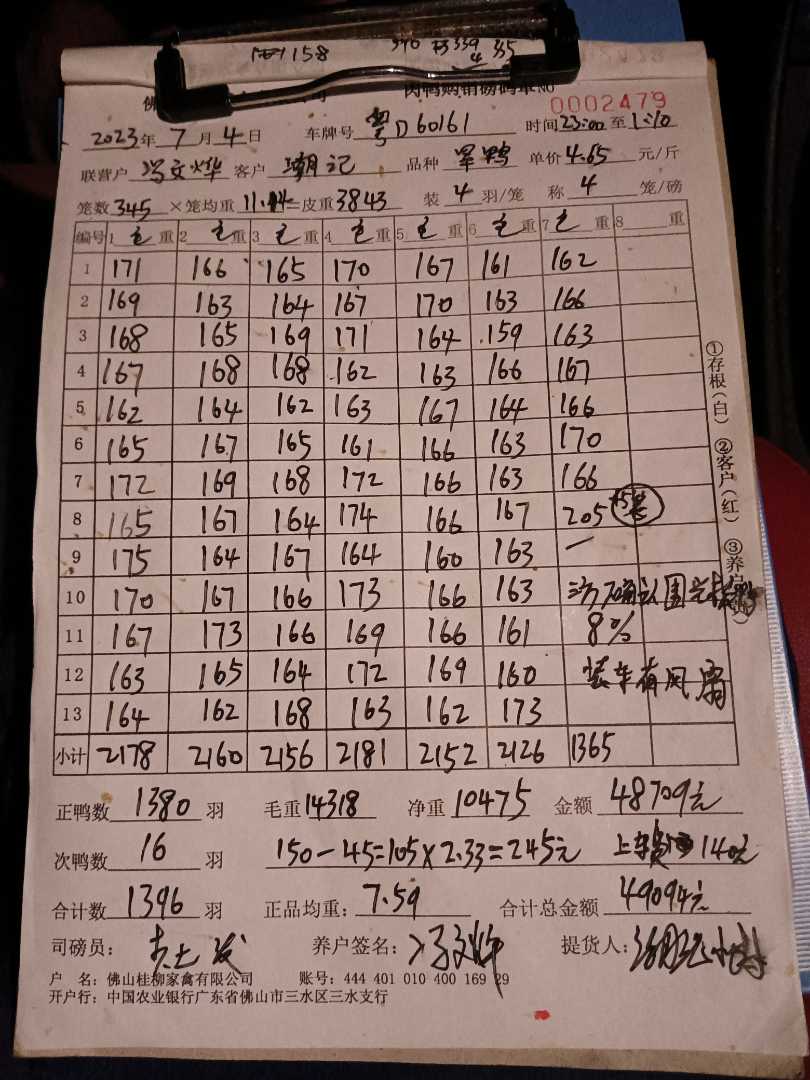 158 370 339 4 335
佛 司 肉鸭购销磅码单NO 0002479
2023年 7月 4日 车牌号 粤D60161 时间 23:00 至 1:10
联营户 冯文烨 客户 潮记 品种 单价 4.65 元/斤
笼数 345 ×笼均重 11.14 =皮重 3843 装 4 羽/笼 称 4 笼/磅
编号 1 毛 重 2 毛 重 3 毛 重 4 毛 重 5 毛 重 6 毛 重 7 毛 重 8 重
1 171 166 165 170 167 161 162
2 169 163 164 167 170 163 166
3 168 165 169 171 164 159 163
4 167 168 168 162 163 166 167
5 162 164 162 163 167 164 166
6 165 167 165 161 166 163 170
7 172 169 168 172 166 163 166
8 165 167 164 174 166 167 205
9 175 164 167 164 160 163 一
10 170 167 166 173 166 163 确认
11 167 173 166 169 166 161 8%
12 163 165 164 172 169 160 装车有风扇
13 164 162 168 163 162 173
小计 2178 2160 2156 2181 2152 2126 1365
正鸭数 1380 羽 毛重 14318 净重 10475 金额 48709元
次鸭数 16 羽 150-45=105×2.33=245元 上车费 140元
合计数 1396 羽 正品均重: 7.59 合计总金额 49094元
司磅员: 养户签名: 冯文烨 提货人:
户 名: 佛山桂柳家禽有限公司 账号: 444 401 010 400 169 29
开户行: 中国农业银行广东省佛山市三水区三水支行
①存根(白) ②客户(红) ③养户